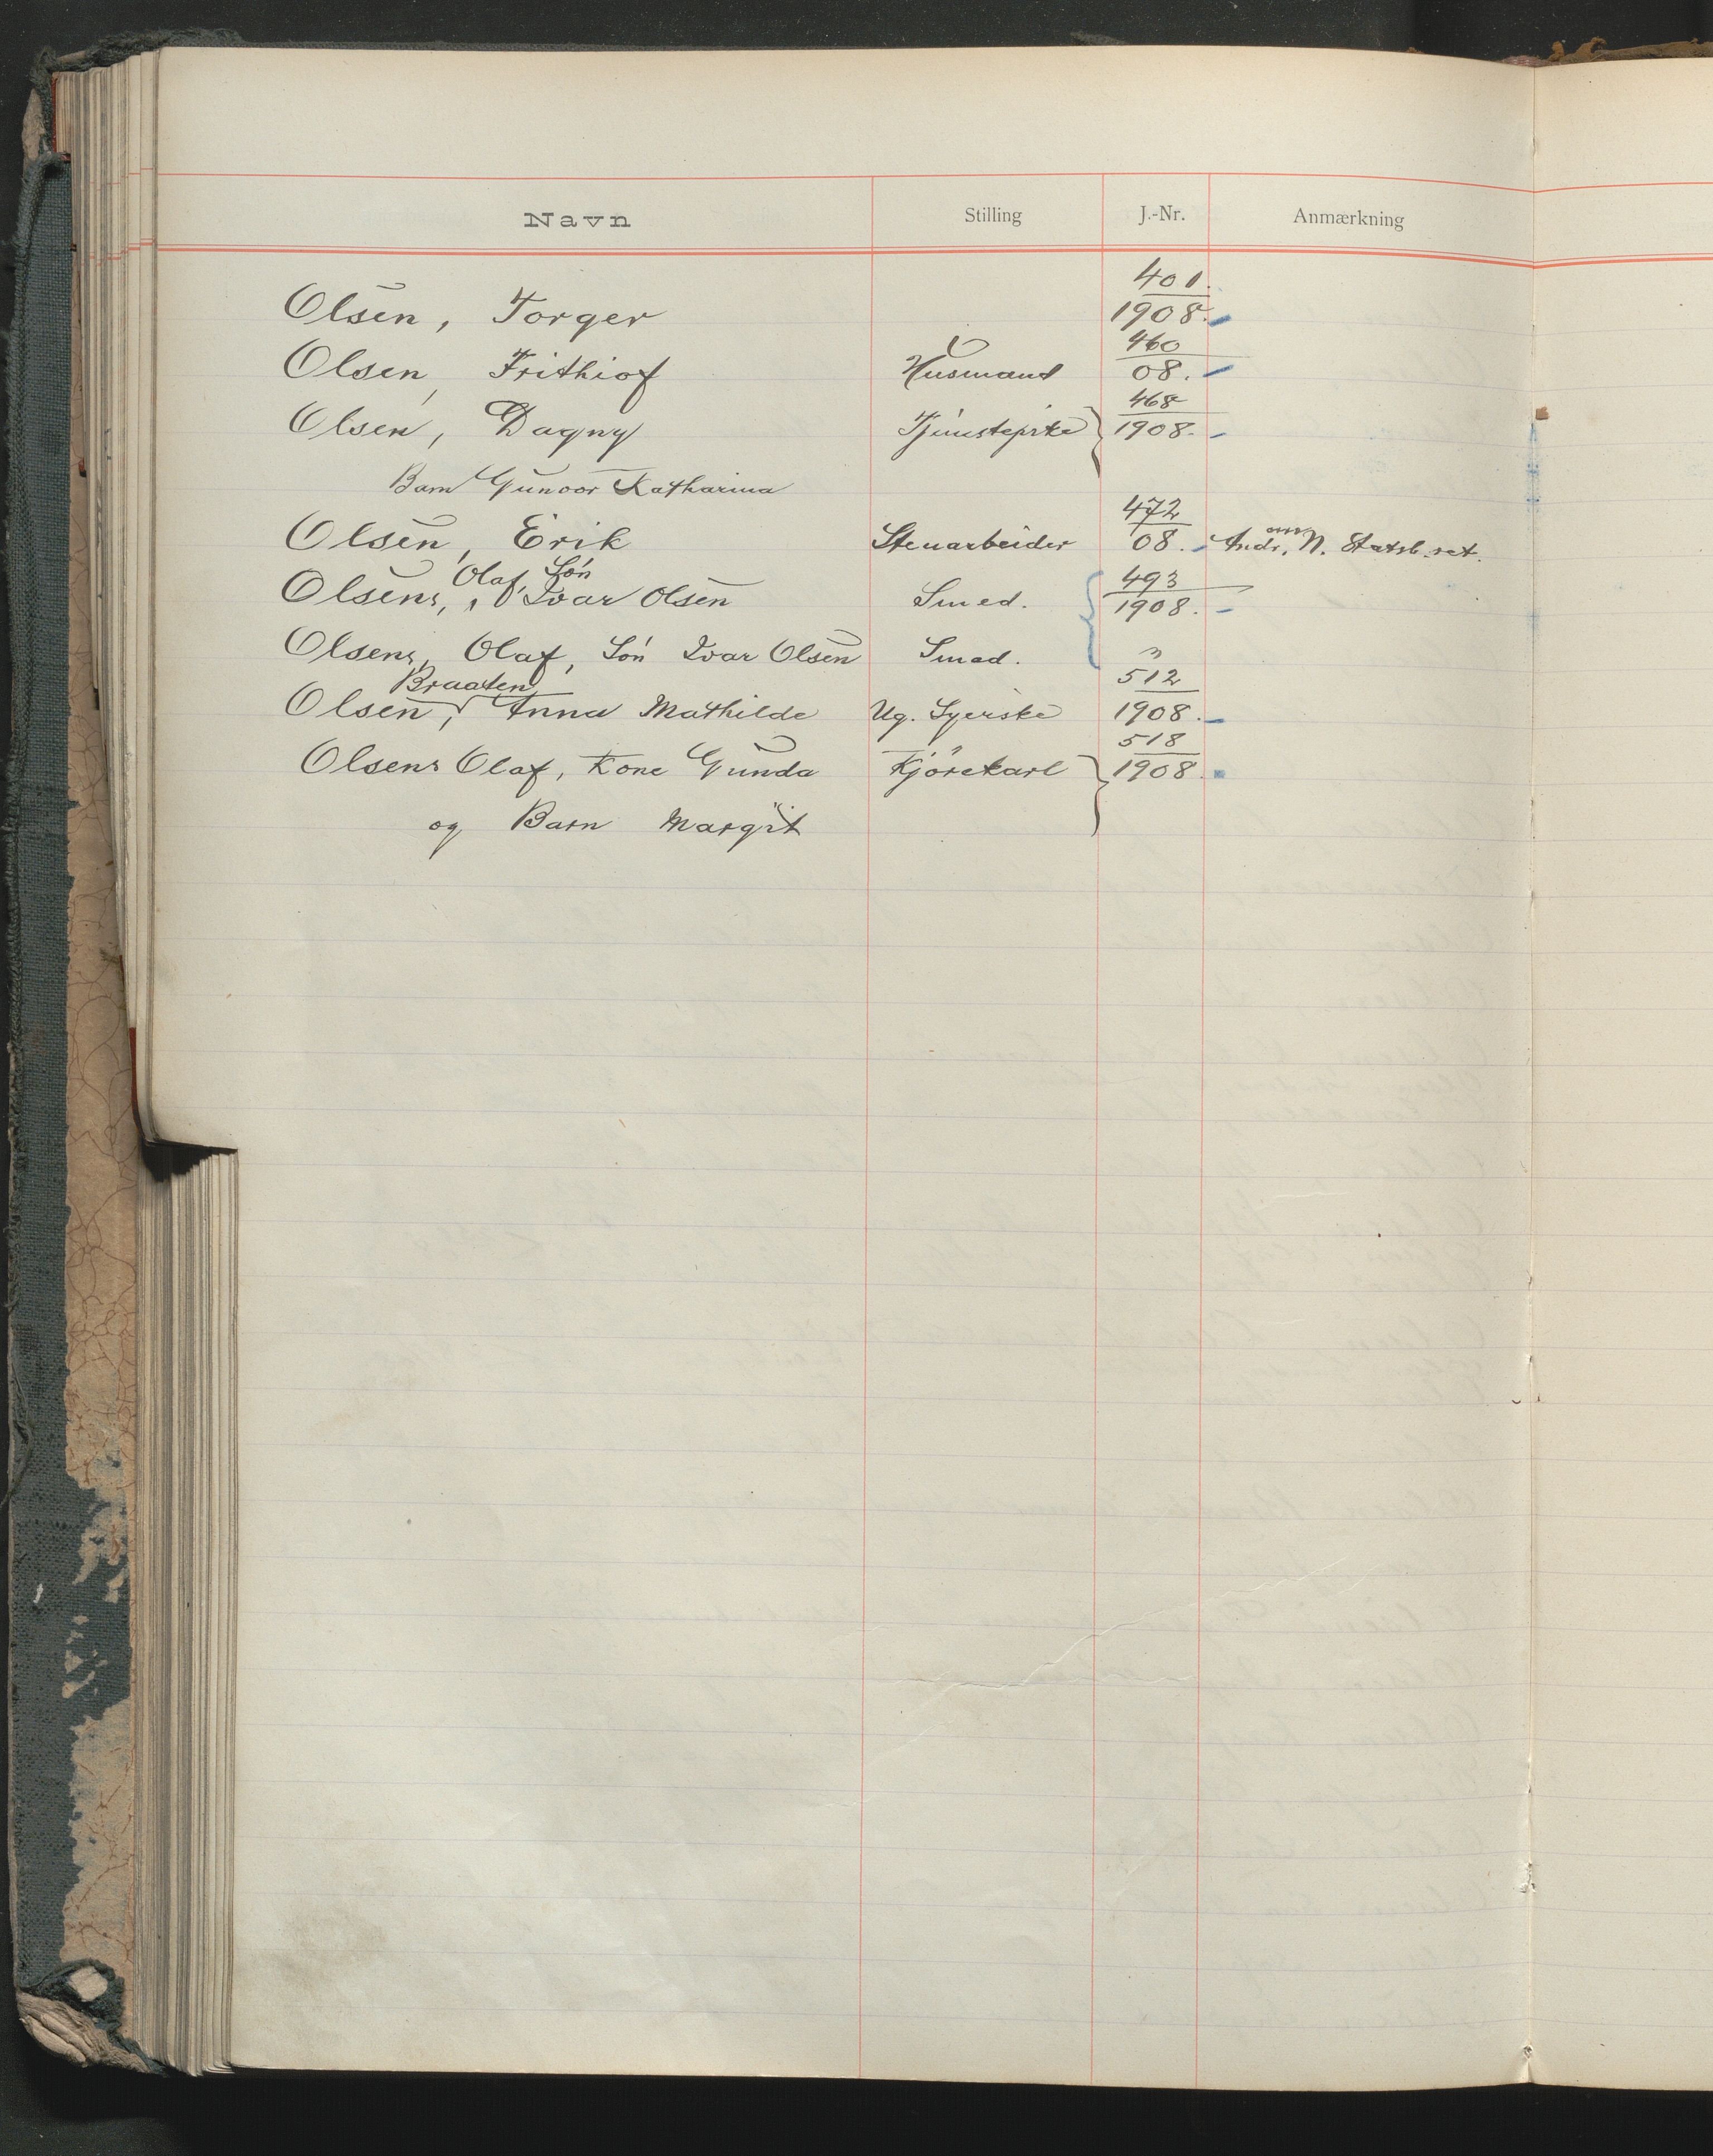 Navn Stilling J.-Nr. Anmærkning
401
Olsen, Torger 1908.
460
Olsen, Frithiof Husmand 08.
468
Olsen, Dagny 1908.
Barn Gunvor Katharina
472
Olsen, Erik Stenarbeider 08. Andr. N. Statsb.ret.
Olaf, Søn 493
Olsens, Ivar Olsen Smed. 1908.
Olsens, Olaf, Søn Ivar Olsen Smed. "
Braaten 512
Olsen, Anna Mathilde Ug. Syerske 1908.
518
Olsens Olaf, Kone Gunda Kjørekarl 1908
og Barn Margit